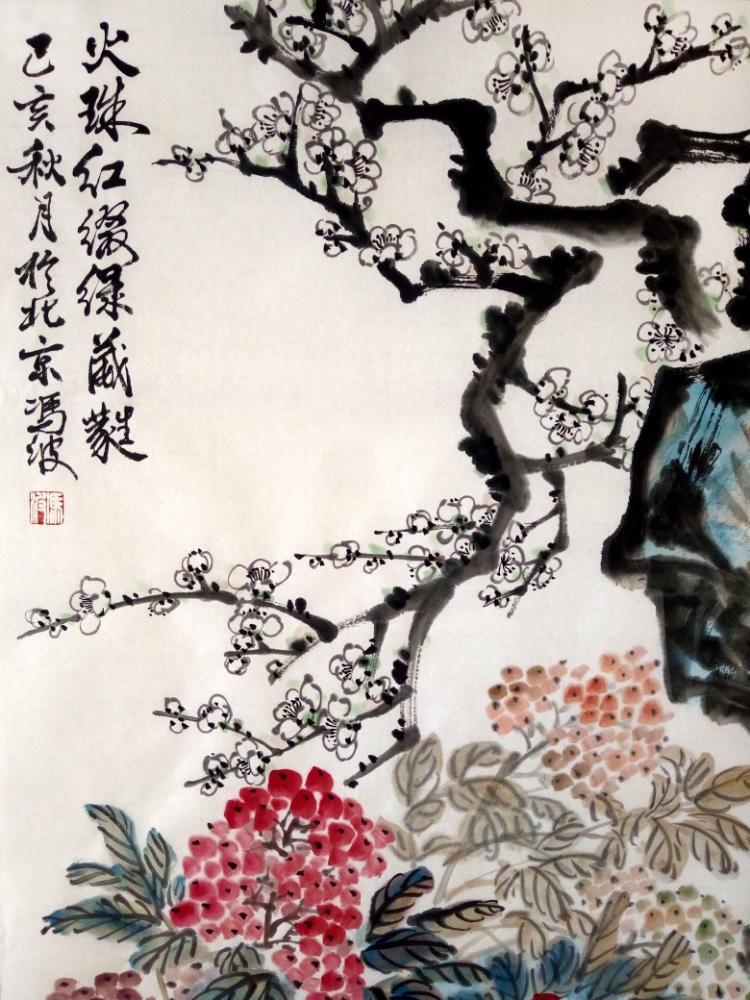 火珠红缀绿葳蕤
己亥秋月於北京冯波